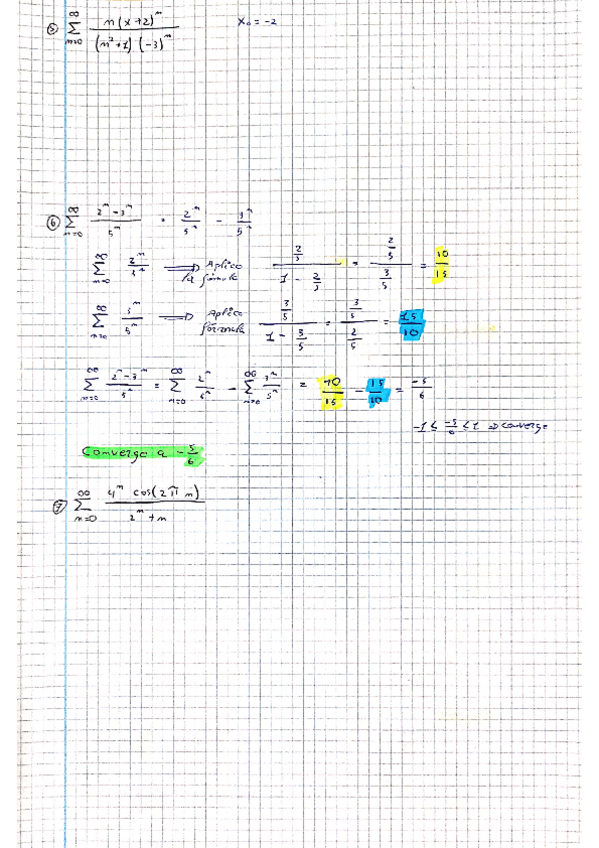 ⑤ ∑_{n=0}^{∞} n(x+2)^n / (n²+1)·(-3)^n    x₀ = -2
⑥ ∑_{n=0}^{∞} (2^n - 3^n)/5^n = 2^n/5^n - 3^n/5^n
∑_{n=0}^{∞} 2^n/5^n ⟹ Aplico la fórmula (2/5)/(1 - 2/5) = (2/5)/(3/5) = 10/15
∑_{n=0}^{∞} 3^n/5^n ⟹ Aplico fórmula (3/5)/(1 - 3/5) = (3/5)/(2/5) = 15/10
∑_{n=0}^{∞} (2^n - 3^n)/5^n = ∑_{n=0}^{∞} 2^n/5^n - ∑_{n=0}^{∞} 3^n/5^n = 10/15 - 15/10 = -5/6
-1 < -5/6 < 1 ⇒ converge
Converge a -5/6
⑦ ∑_{n=0}^{∞} 4^n cos(2πn) / 2^n + n